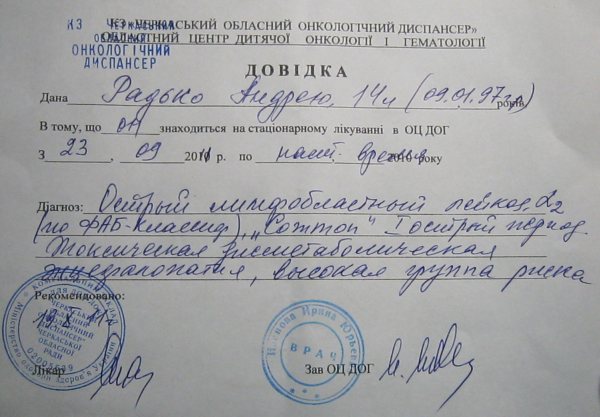 КЗ «ЧЕРКАСЬКИЙ ОБЛАСНИЙ ОНКОЛОГІЧНИЙ ДИСПАНСЕР»
ОБЛАСТНИЙ ЦЕНТР ДИТЯЧОЇ ОНКОЛОГІЇ І ГЕМАТОЛОГІЇ
КЗ ЧЕРКАСЬКИЙ
ОБЛАСНИЙ
ОНКОЛОГІЧНИЙ
ДИСПАНСЕР
ДОВІДКА
Дана Радько Андрею, 14л (09.01.97г.р.) років
В тому, що он знаходиться на стаціонарному лікуванні в ОЦ ДОГ
З 23, 09 2011 р. по наст. время 2010 року
Діагноз: Острый лимфобластный лейкоз, L2
(по ФАБ-классиф), "Common" I острый период.
Токсическая дисметаболическая
энцефалопатия, высокая группа риска
Рекомендовано:
ДЛЯ ДОВІДОК
ЧЕРКАСЬКИЙ
ОБЛАСНИЙ
ОНКОЛОГІЧНИЙ
ДИСПАНСЕР
ЧЕРКАСЬКОЇ
ОБЛАСНОЇ
РАДИ
02005639
Ирина Юрьевна
ВРАЧ
Лікар Зав ОЦ ДОГ